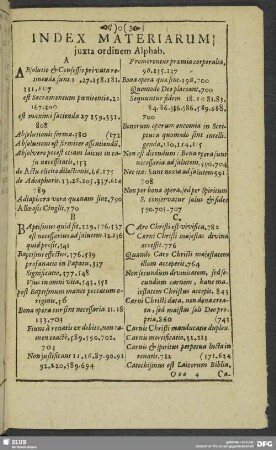 INDEX MATERIARUM
juxta ordinem Alphab.
A
Absolutio & Confessio privata re-
est Sacramentum pœnitentiæ,
167.200
808
Absolutionis forma, 380
181
de Actu elicito dilectionis, 66.175
de Adoptione, 13.28.205.327.614
789
Adiaphora vera quænam sint, 790
Allœosis Cinglii, 770
B
Baptismus quid sit, 129.176.537
est necessarius ad salutem. 12.156
quid prosit, 541
Baptismi effectus, 176.539
profanatio in Papatu, 337
Significatio, 177.548
Usus in omni vita, 543.551
post Baptismum manet peccatum o-
originis, 56
Bona opera cur sint necessaria, 11.18
133.703
Fiunt à renatis ex debito, non ta-
men coactè, 589.590.702.
703
Non justificant, 11.16.87.90.91
92.220.589.694
Promerentur præmia corporalia,
96.135.137
Bona opera quæ sint, 198.700
Quomodo Deo placeant, 700
Sequuntur fidem, 18.80.81.83.
84.86.315.586.589.688.
700
Bonorum operum encomia in Scri-
ptura quomodo sint intelli-
genda, 110.114.115
Non est dicendum: Bona opera sunt
necessaria ad salutem, 590.704
Nec ita: Sunt noxia ad salutem, 591
708
Non per bona opera, sed per Spiritum
S. conservatur salus & fides
590.705.707
C.
Caro Christi est vivifica, 782
Carni Christi majestas divina
accessit. 776
Quando Caro Christi majestatem
illam acceperit, 764
Non secundum divinitatem, sed se-
cundum carnem, hanc ma-
jestatem Christus accepit, 843
Carni Christi data, non dona crea-
ta, sed majestas sub Deo pro-
pria, 860
Carnis Christi manducatio duplex.
Carnis mortificatio, 32.213
Carnis & spiritus perpetua lucta in
renatis. 782
Catechismus est Laicorum Biblia,
Ooo 4
Ca-